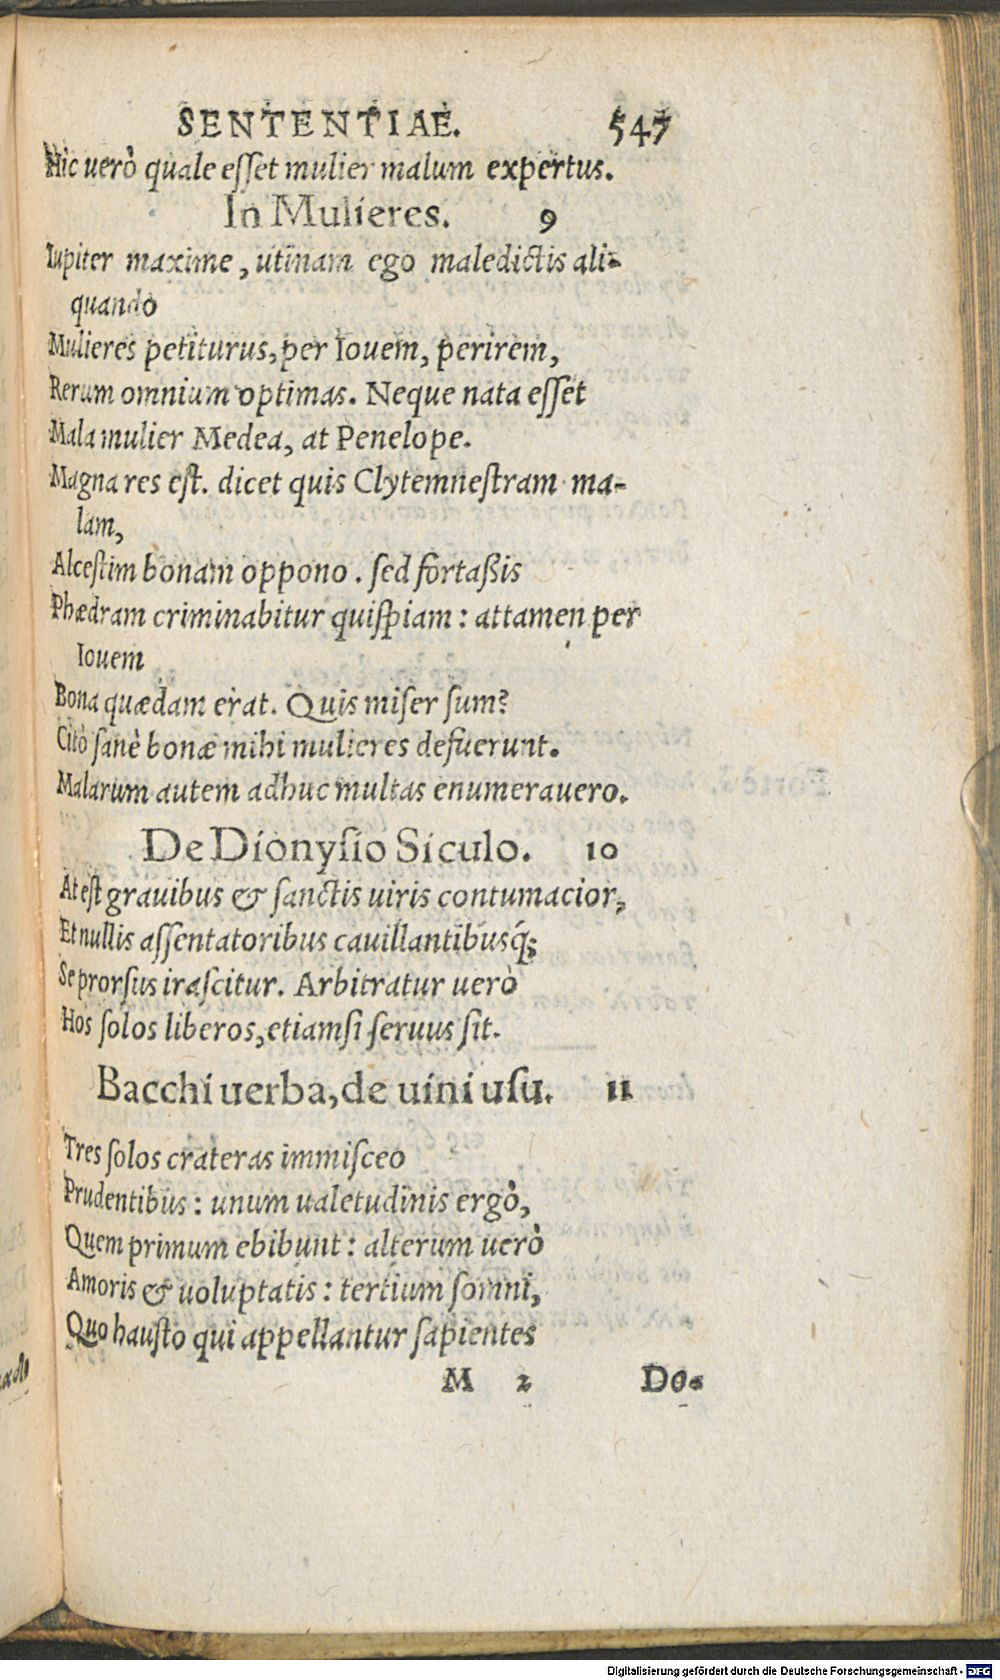 SENTENTIAE. 547
Hic uerò quale eſſet mulier malum expertus.
In Mulieres. 9
Iupiter maxime, utinam ego maledictis ali-
quando
Mulieres petiturus, per Iouem, perirem,
Rerum omnium optimas. Neque nata eſſet
Mala mulier Medea, at Penelope.
Magna res eſt. dicet quis Clytemneſtram ma-
lam,
Alceſtim bonam oppono. ſed fortaßis
Phædram criminabitur quiſpiam: attamen per
Iouem
Bona quædam erat. Quis miſer ſum?
Citò ſanè bonæ mihi mulieres defuerunt.
Malarum autem adhuc multas enumerauero.
De Dionyſio Siculo. 10
At eſt grauibus & ſanctis uiris contumacior,
Et nullis aſſentatoribus cauillantibusq́;
Se prorſus iraſcitur. Arbitratur uerò
Hos ſolos liberos, etiamſi ſeruus ſit.
Bacchi uerba, de uini uſu. 11
Tres ſolos crateras immiſceo
Prudentibus: unum ualetudinis ergò,
Quem primum ebibunt: alterum uerò
Amoris & uoluptatis: tertium ſomni,
Quo hauſto qui appellantur ſapientes
M 2 Do-
Digitalisierung gefördert durch die Deutsche Forschungsgemeinschaft - DFG